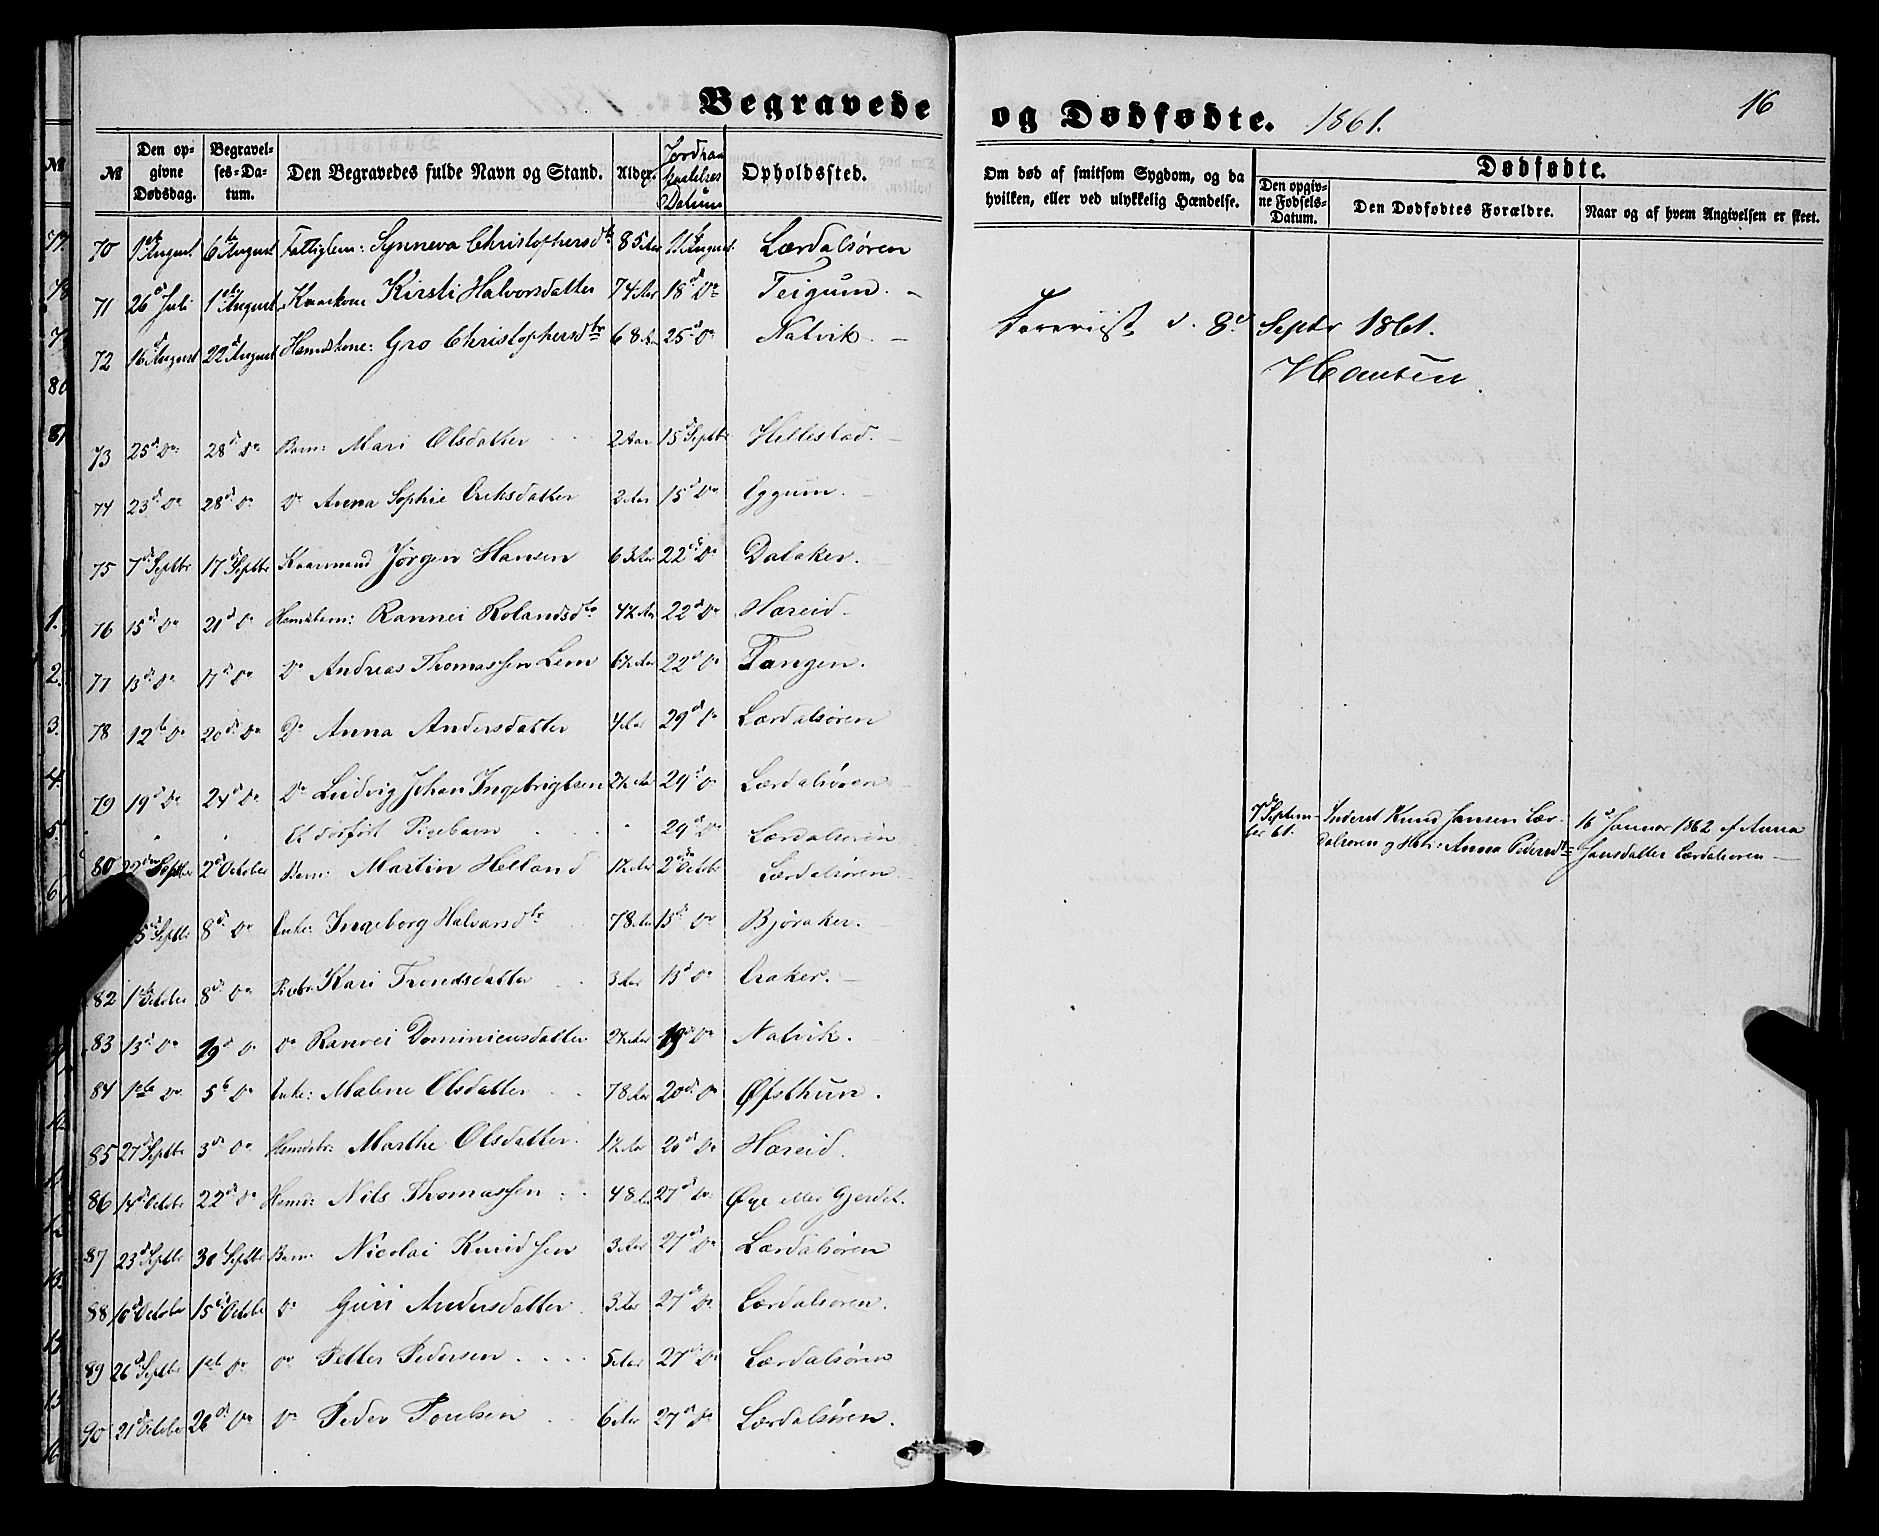 Begravede og Dødfødte. 1861. 16
№ Den opgivne Dødsdag. Begravelses-Datum. Den Begravedes fulde Navn og Stand. Alder. Jordpaakastelses Datum Opholdssted. Om død af smitsom Sygdom, og da hvilken, eller ved ulykkelig Hændelse. Dødfødte. Den opgivne Fødsels-Datum. Den Dødfødtes Forældre. Naar og af hvem Angivelsen er skeet.
70 1ste August 6te August Fattiglem: Synneva Christophersdtr 85 Aar 11te August Lærdalsøren
71 26d Juli 1ste August Kaarkone Kirsti Halvorsdatter 74 Aar 18d Do Teigum. –
72 16d August 22d August Huuskone: Gro Christophersdtr 68 Aar 25d Do Natvik. –
d. 8d Septr 1861.
73 25d Do 28d Do Barn: Mari Olsdatter 2 Aar 15d Septbr Hellistad. –
74 23d Do 28d Do Do Anna Sophie Eriksdatter 2 Aar 15d Do Eggum. –
75 7d Septbr 17d Septbr Kaarmand Jørgen Hansen 63 Aar 22d Do Dalaker.
76 15d Do 21d Do Rannei Rolandsdtr 4½ Aar 22d Do Hæreid.
77 13d Do 17d Do Do Andreas Thomassen Lem 6½ Aar 22d Do Tangen.
78 12te Do 20d Do Do Anna Andersdatter 4 Aar 29d Do Lærdalsøren
79 19d Do 24d Do Do Ludvig Johan Ingebrigtsen 2½ Aar 29d Do Lærdalsøren
" " " Et dødfødt Pigebarn " 29d Do Lærdalsøren 7de September 61. Inderst Knud Jansen Lærdalsøren og Hstr: Anna Pedersdtr 16d Januar 1862 af Anna Hansdatter Lærdalsøren –
80 Septbr 2d October Barn: Martin Helland 1½ Aar 2den Octobr Lærdalsøren.
Septbr 8d Do Enke: Ingeborg Halvarsdtr 78 Aar 13d Do Bjøraker.
82 1ste October 8d Do Kari Trondsdatter 3 Aar 13d Do Eraker. –
83 13d Do 19d Do Do Ranvei Dominicusdatter 2½ Aar 19d Do Natvik.
84 1ste Do 5te Do Enke: Malene Olsdatter 78 Aar 20d Do Øfsthun.
85 27d Septbr 3d Do Marthe Olsdatter. 1½ Aar 20d Do Hæreid.
86 14d Octobr 22d Do Huusmd: Nils Thomassen 48 Aar 27d Do Øye eller Gjerdet.
87 23d Septbr 30 Septbr Barn: Nicolai Knudsen 3 Aar 27d Do Lærdalsøren
88 10d October 15d October Do Guri Andersdatter 3 Aar 27d Do Lærdalsøren.
89 26d Septbr 1ste Do Do Petter Pedersen 5 Aar 27d Do Lærdalsøren
90 21d October 26d Do Do Peder Poulsen 6 Aar 27d Do Lærdalsøren.